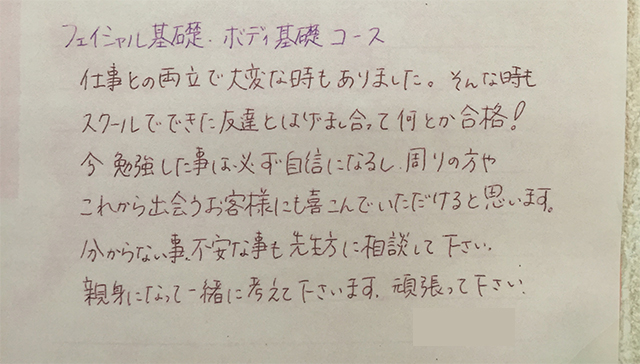 フェイシャル基礎・ボディ基礎コース
仕事との両立で大変な時もありました。そんな時も
スクールでできた友達とはげまし合って何とか合格!
今勉強した事は必ず自信になるし、周りの方や
これから出会うお客様にも喜こんでいただけると思います。
分からない事、不安な事も先生方に相談して下さい。
親身になって一緒に考えて下さいます。頑張って下さい。